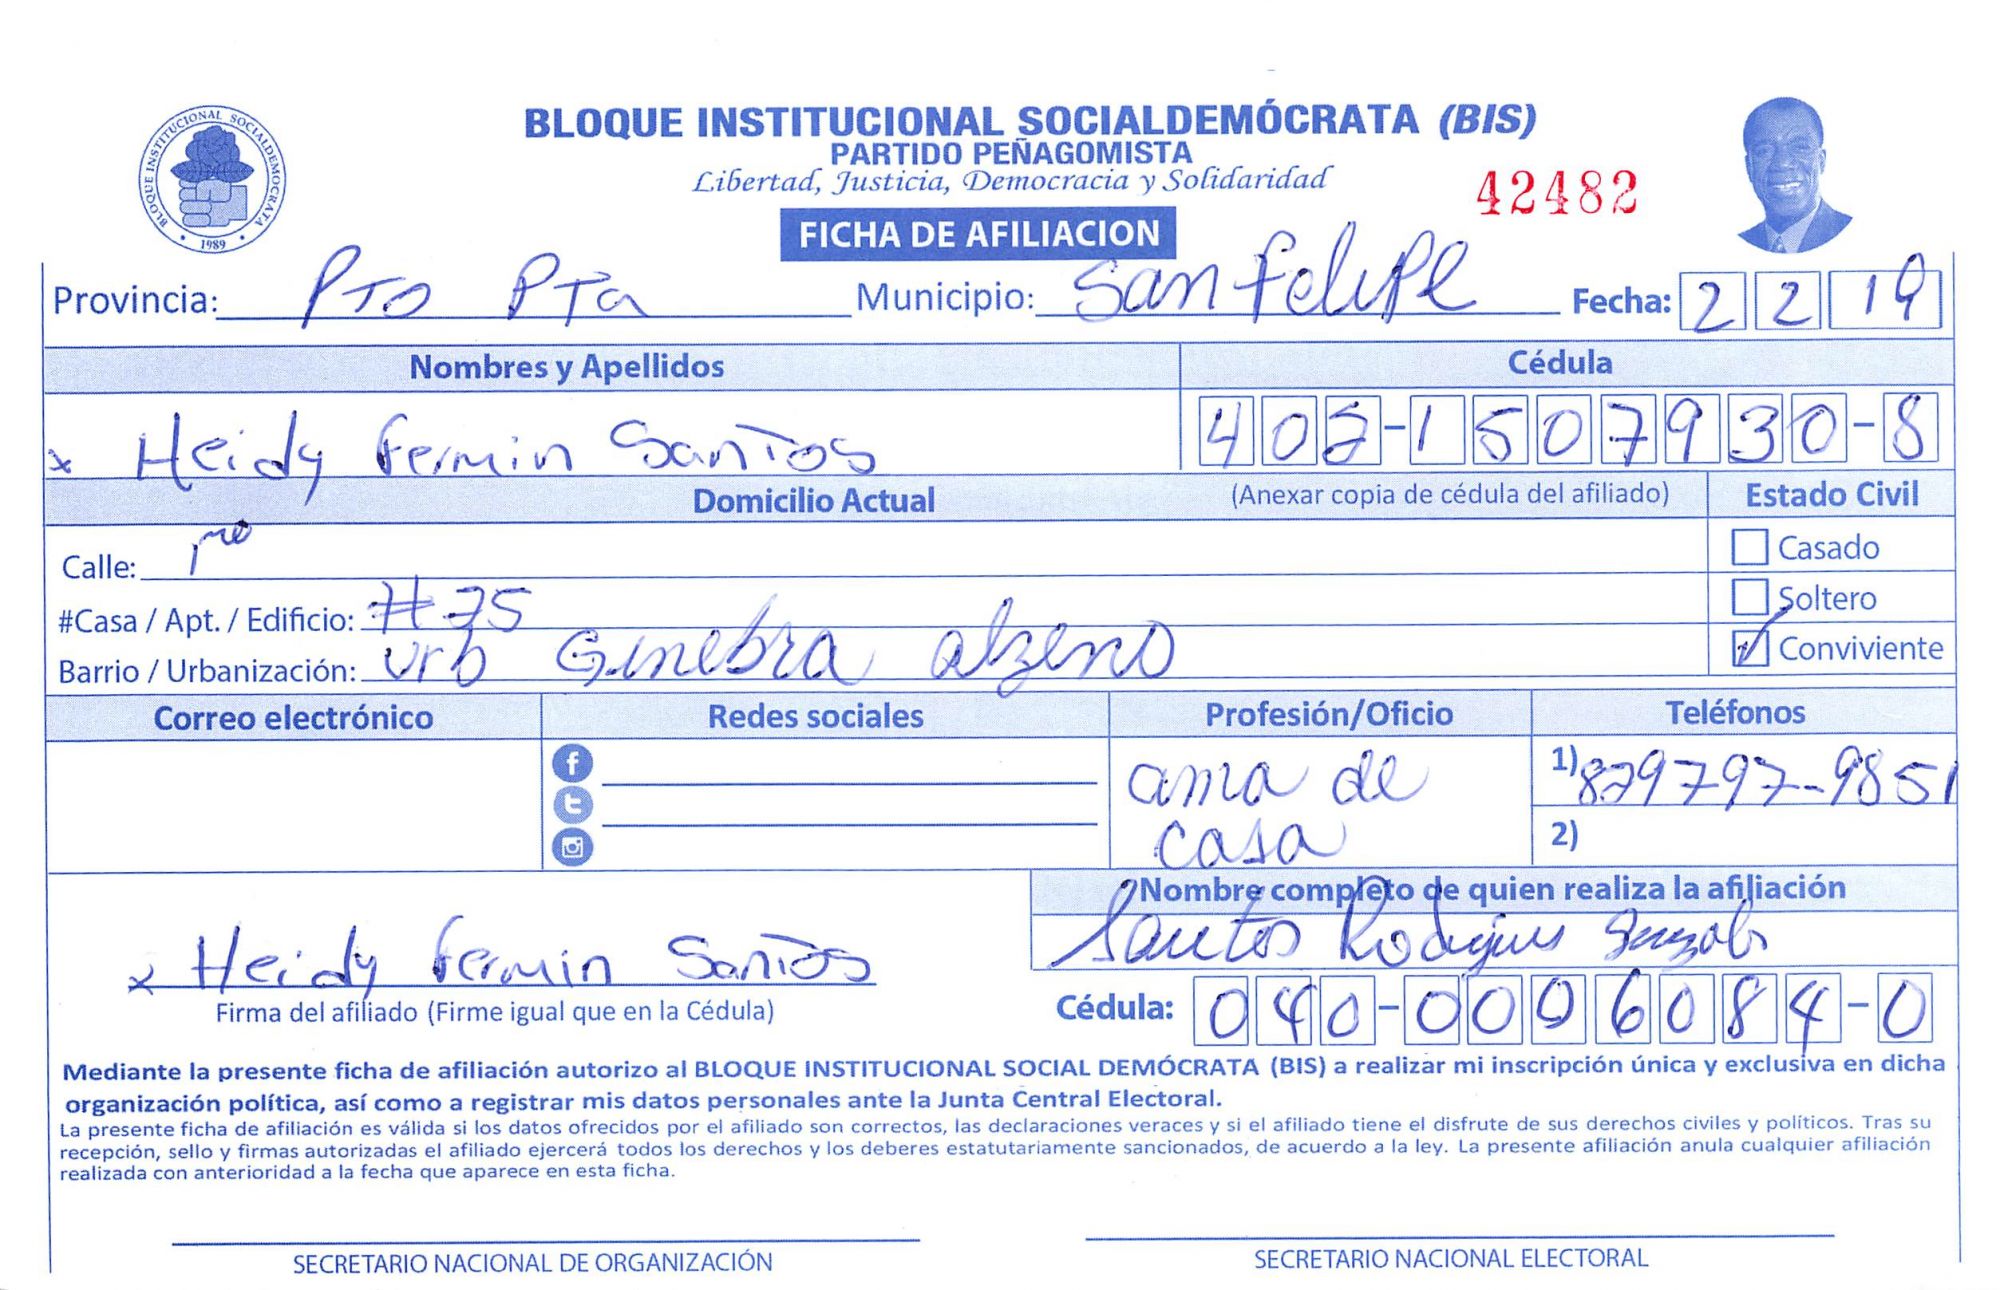 BLOQUE INSTITUCIONAL SOCIALDEMOCRATA
1989
BLOQUE INSTITUCIONAL SOCIALDEMÓCRATA (BIS)
PARTIDO PEÑAGOMISTA
Libertad, Justicia, Democracia y Solidaridad
42482
FICHA DE AFILIACION
Provincia: Pto Pta Municipio: San Felipe Fecha: 2 2 19
Nombres y Apellidos Cédula
x Heidy Fermin Santos 402-1507930-8
Domicilio Actual (Anexar copia de cédula del afiliado) Estado Civil
Calle: 1ra Casado
#Casa / Apt. / Edificio: #75 Soltero
Barrio / Urbanización: urb Ginebra alzeno Conviviente
Correo electrónico Redes sociales Profesión/Oficio Teléfonos
ama de casa 1) 829797-9851
2)
Nombre completo de quien realiza la afiliación
Santos Rodriguez
x Heidy Fermin Santos
Firma del afiliado (Firme igual que en la Cédula) Cédula: 040-0006084-0
Mediante la presente ficha de afiliación autorizo al BLOQUE INSTITUCIONAL SOCIAL DEMÓCRATA (BIS) a realizar mi inscripción única y exclusiva en dicha
organización política, así como a registrar mis datos personales ante la Junta Central Electoral.
La presente ficha de afiliación es válida si los datos ofrecidos por el afiliado son correctos, las declaraciones veraces y si el afiliado tiene el disfrute de sus derechos civiles y políticos. Tras su
recepción, sello y firmas autorizadas el afiliado ejercerá todos los derechos y los deberes estatutariamente sancionados, de acuerdo a la ley. La presente afiliación anula cualquier afiliación
realizada con anterioridad a la fecha que aparece en esta ficha.
SECRETARIO NACIONAL DE ORGANIZACIÓN SECRETARIO NACIONAL ELECTORAL